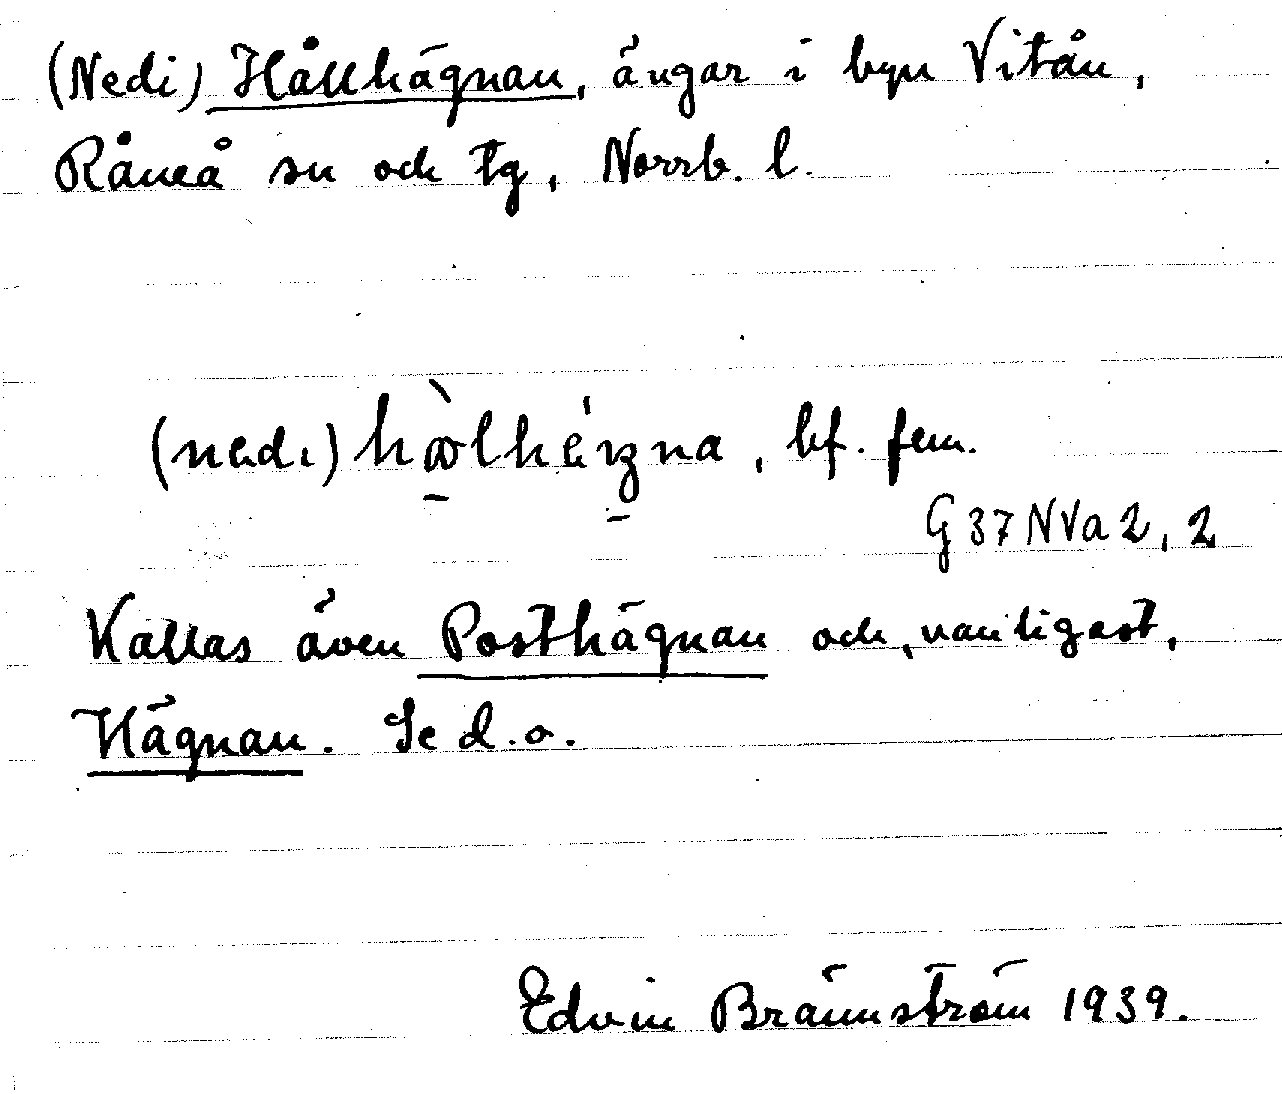 (Nedi) Hållhägnan, ängar i byn Vitån,
Råneå sn och tg, Norrb. l.
(nedı)
, bf. fem.
G 37 N Va 2, 2
Kallas även Posthägnan och, vanligast,
Hägnan. Se d.o.
Edvin Brännström 1939.